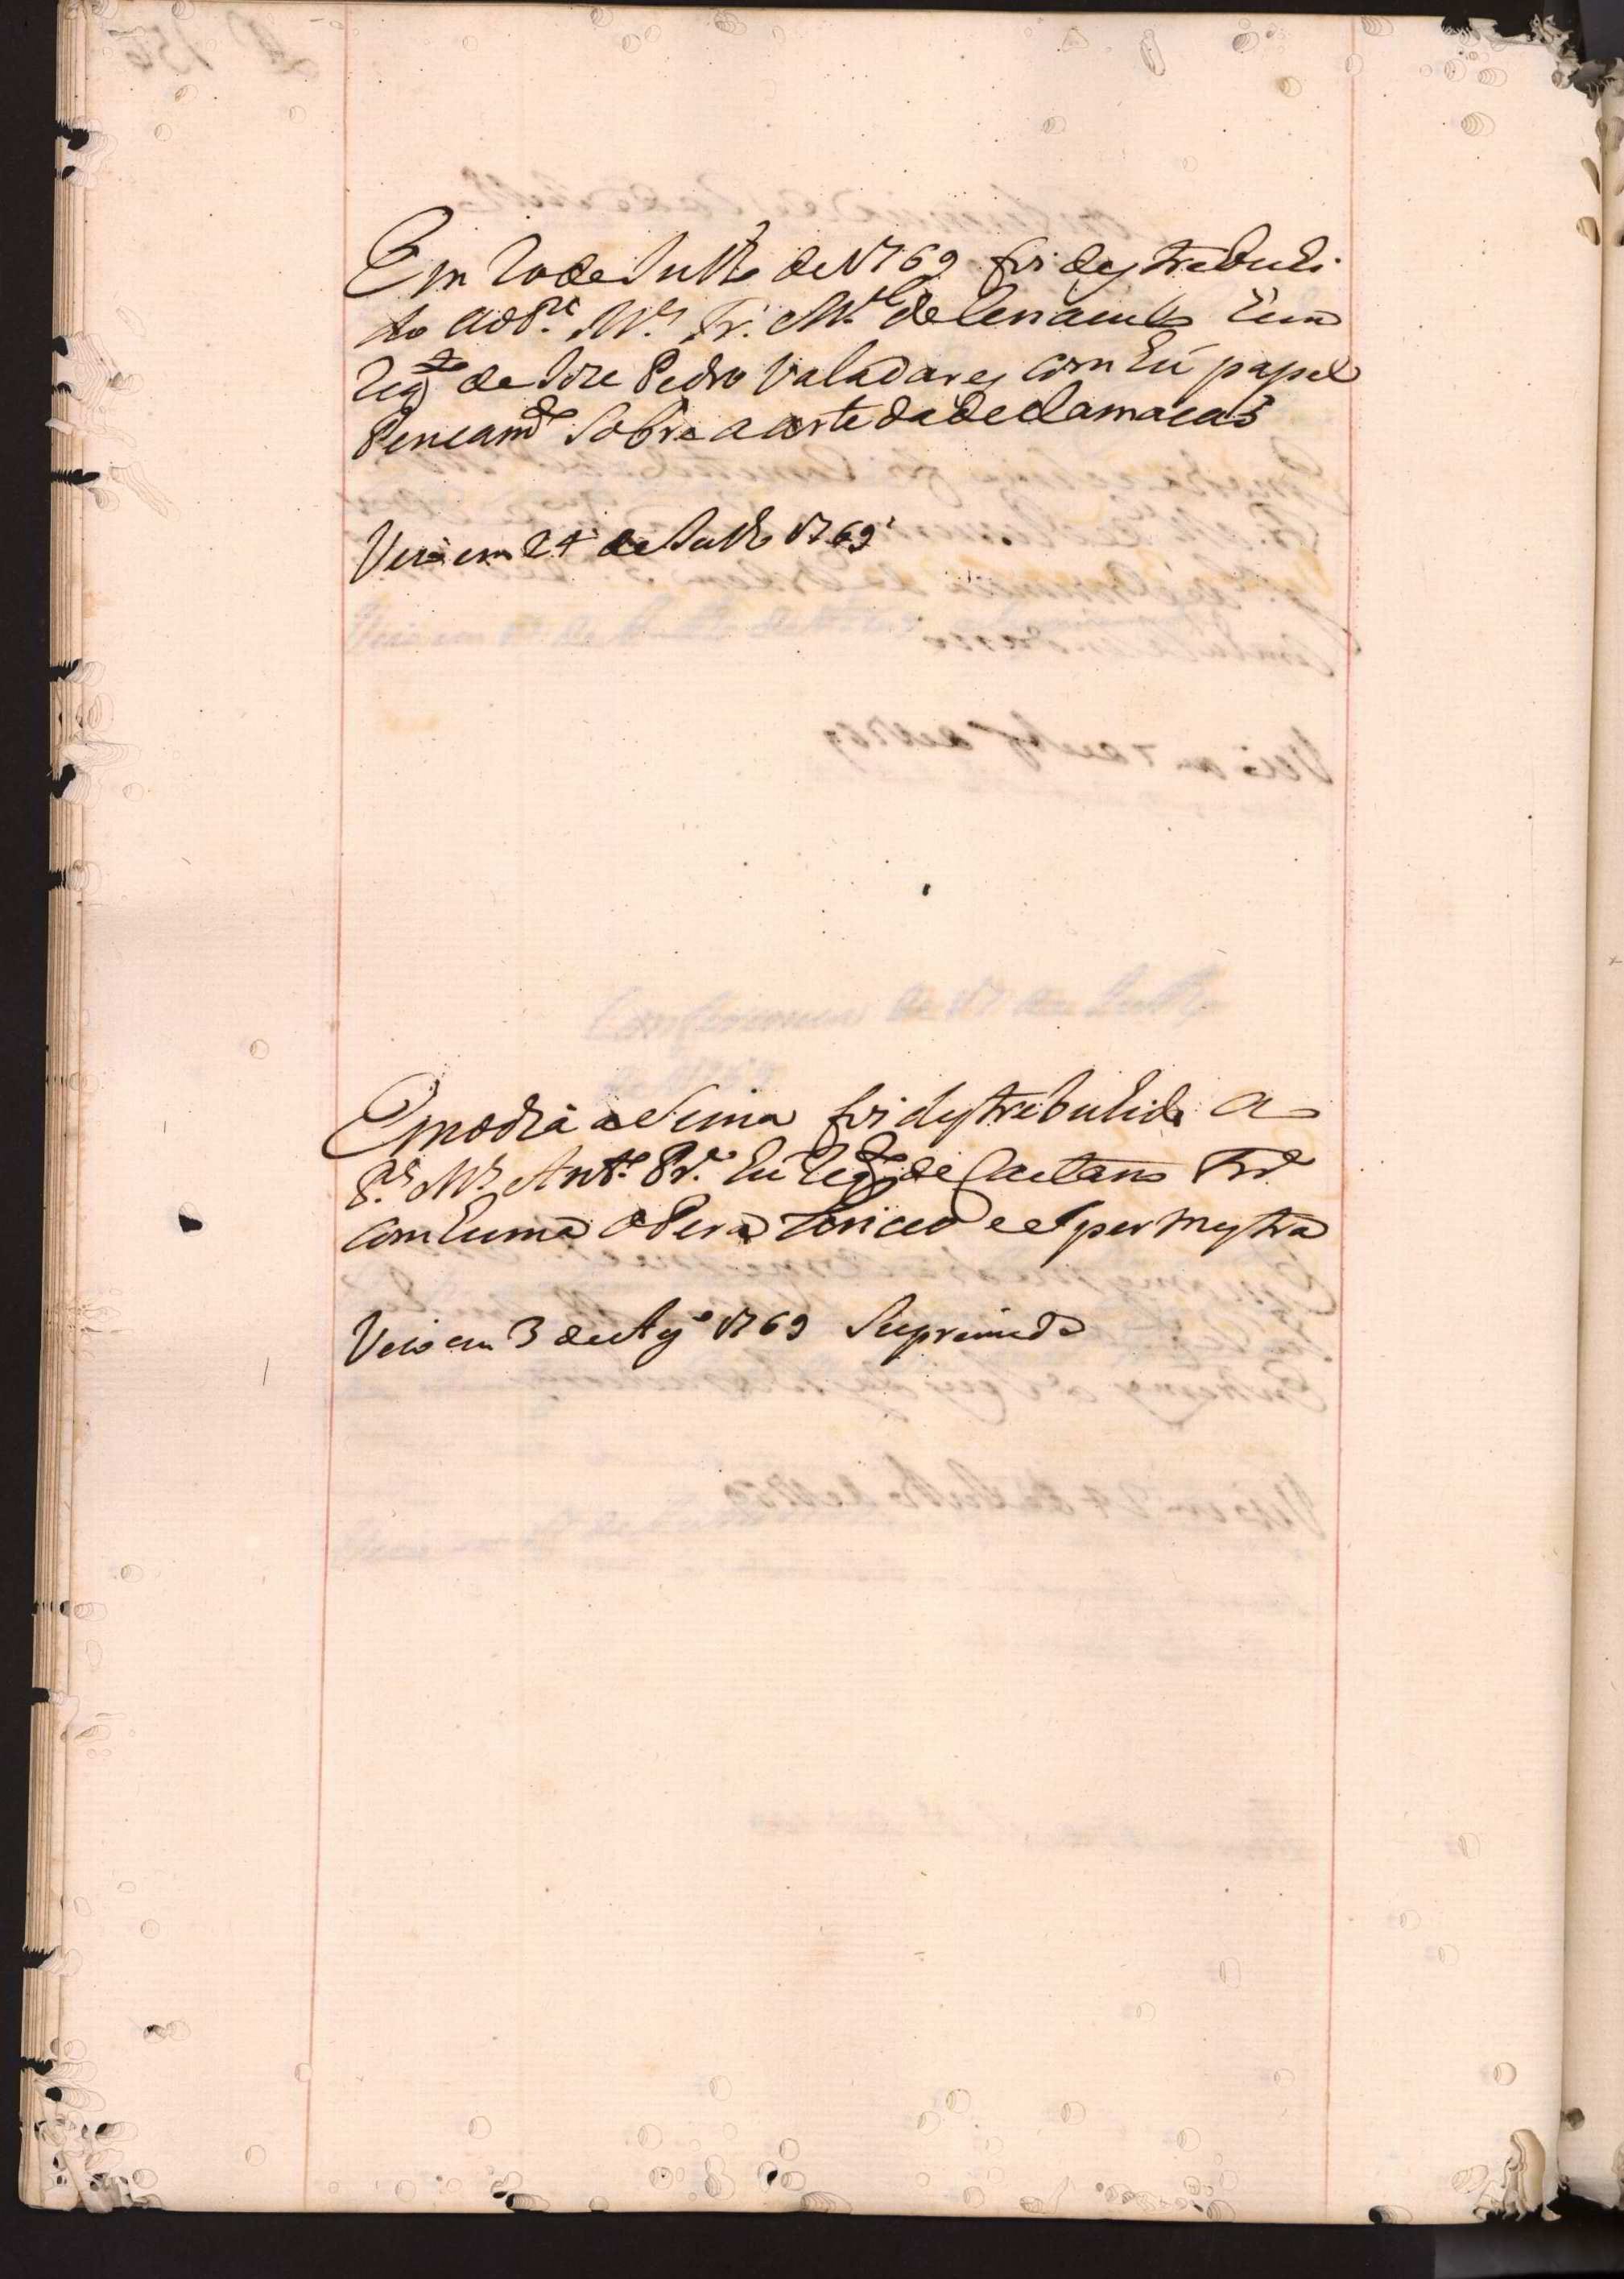 Em 20 de Julho de 1769 foi destrebuhi
do ao P.e M.e Fr. M.el de Cenaculo hum
Req.to de Joze Pedro Valadares com hũ papel
Pensam.to Sobre a arte da declamacaõ
Veio em 24 de Julho 1769
Em o dia aSima foi destrebuhida a
P.e M.e Ant.o Pr.a hũ Req.to de Caetano
com huma oPera e esper mestra
Veio em 3 de Ag.o 1769 Suprimido